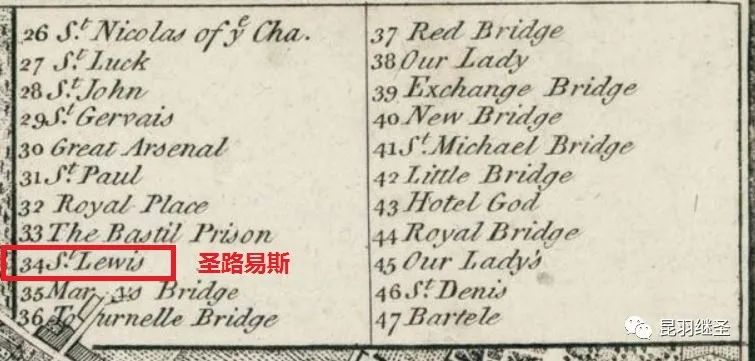 26 St Nicolas of ye Cha.
27 St Luck
28 St John
29 St Gervais
30 Great Arsenal
31 St Paul
32 Royal Place
33 The Bastil Prison
34 St Lewis 圣路易斯
35 Bridge
36 Tournelle Bridge
37 Red Bridge
38 Our Lady
39 Exchange Bridge
40 New Bridge
41 St Michael Bridge
42 Little Bridge
43 Hotel God
44 Royal Bridge
45 Our Lady's
46 St Denis
47 Bartele
昆羽继圣